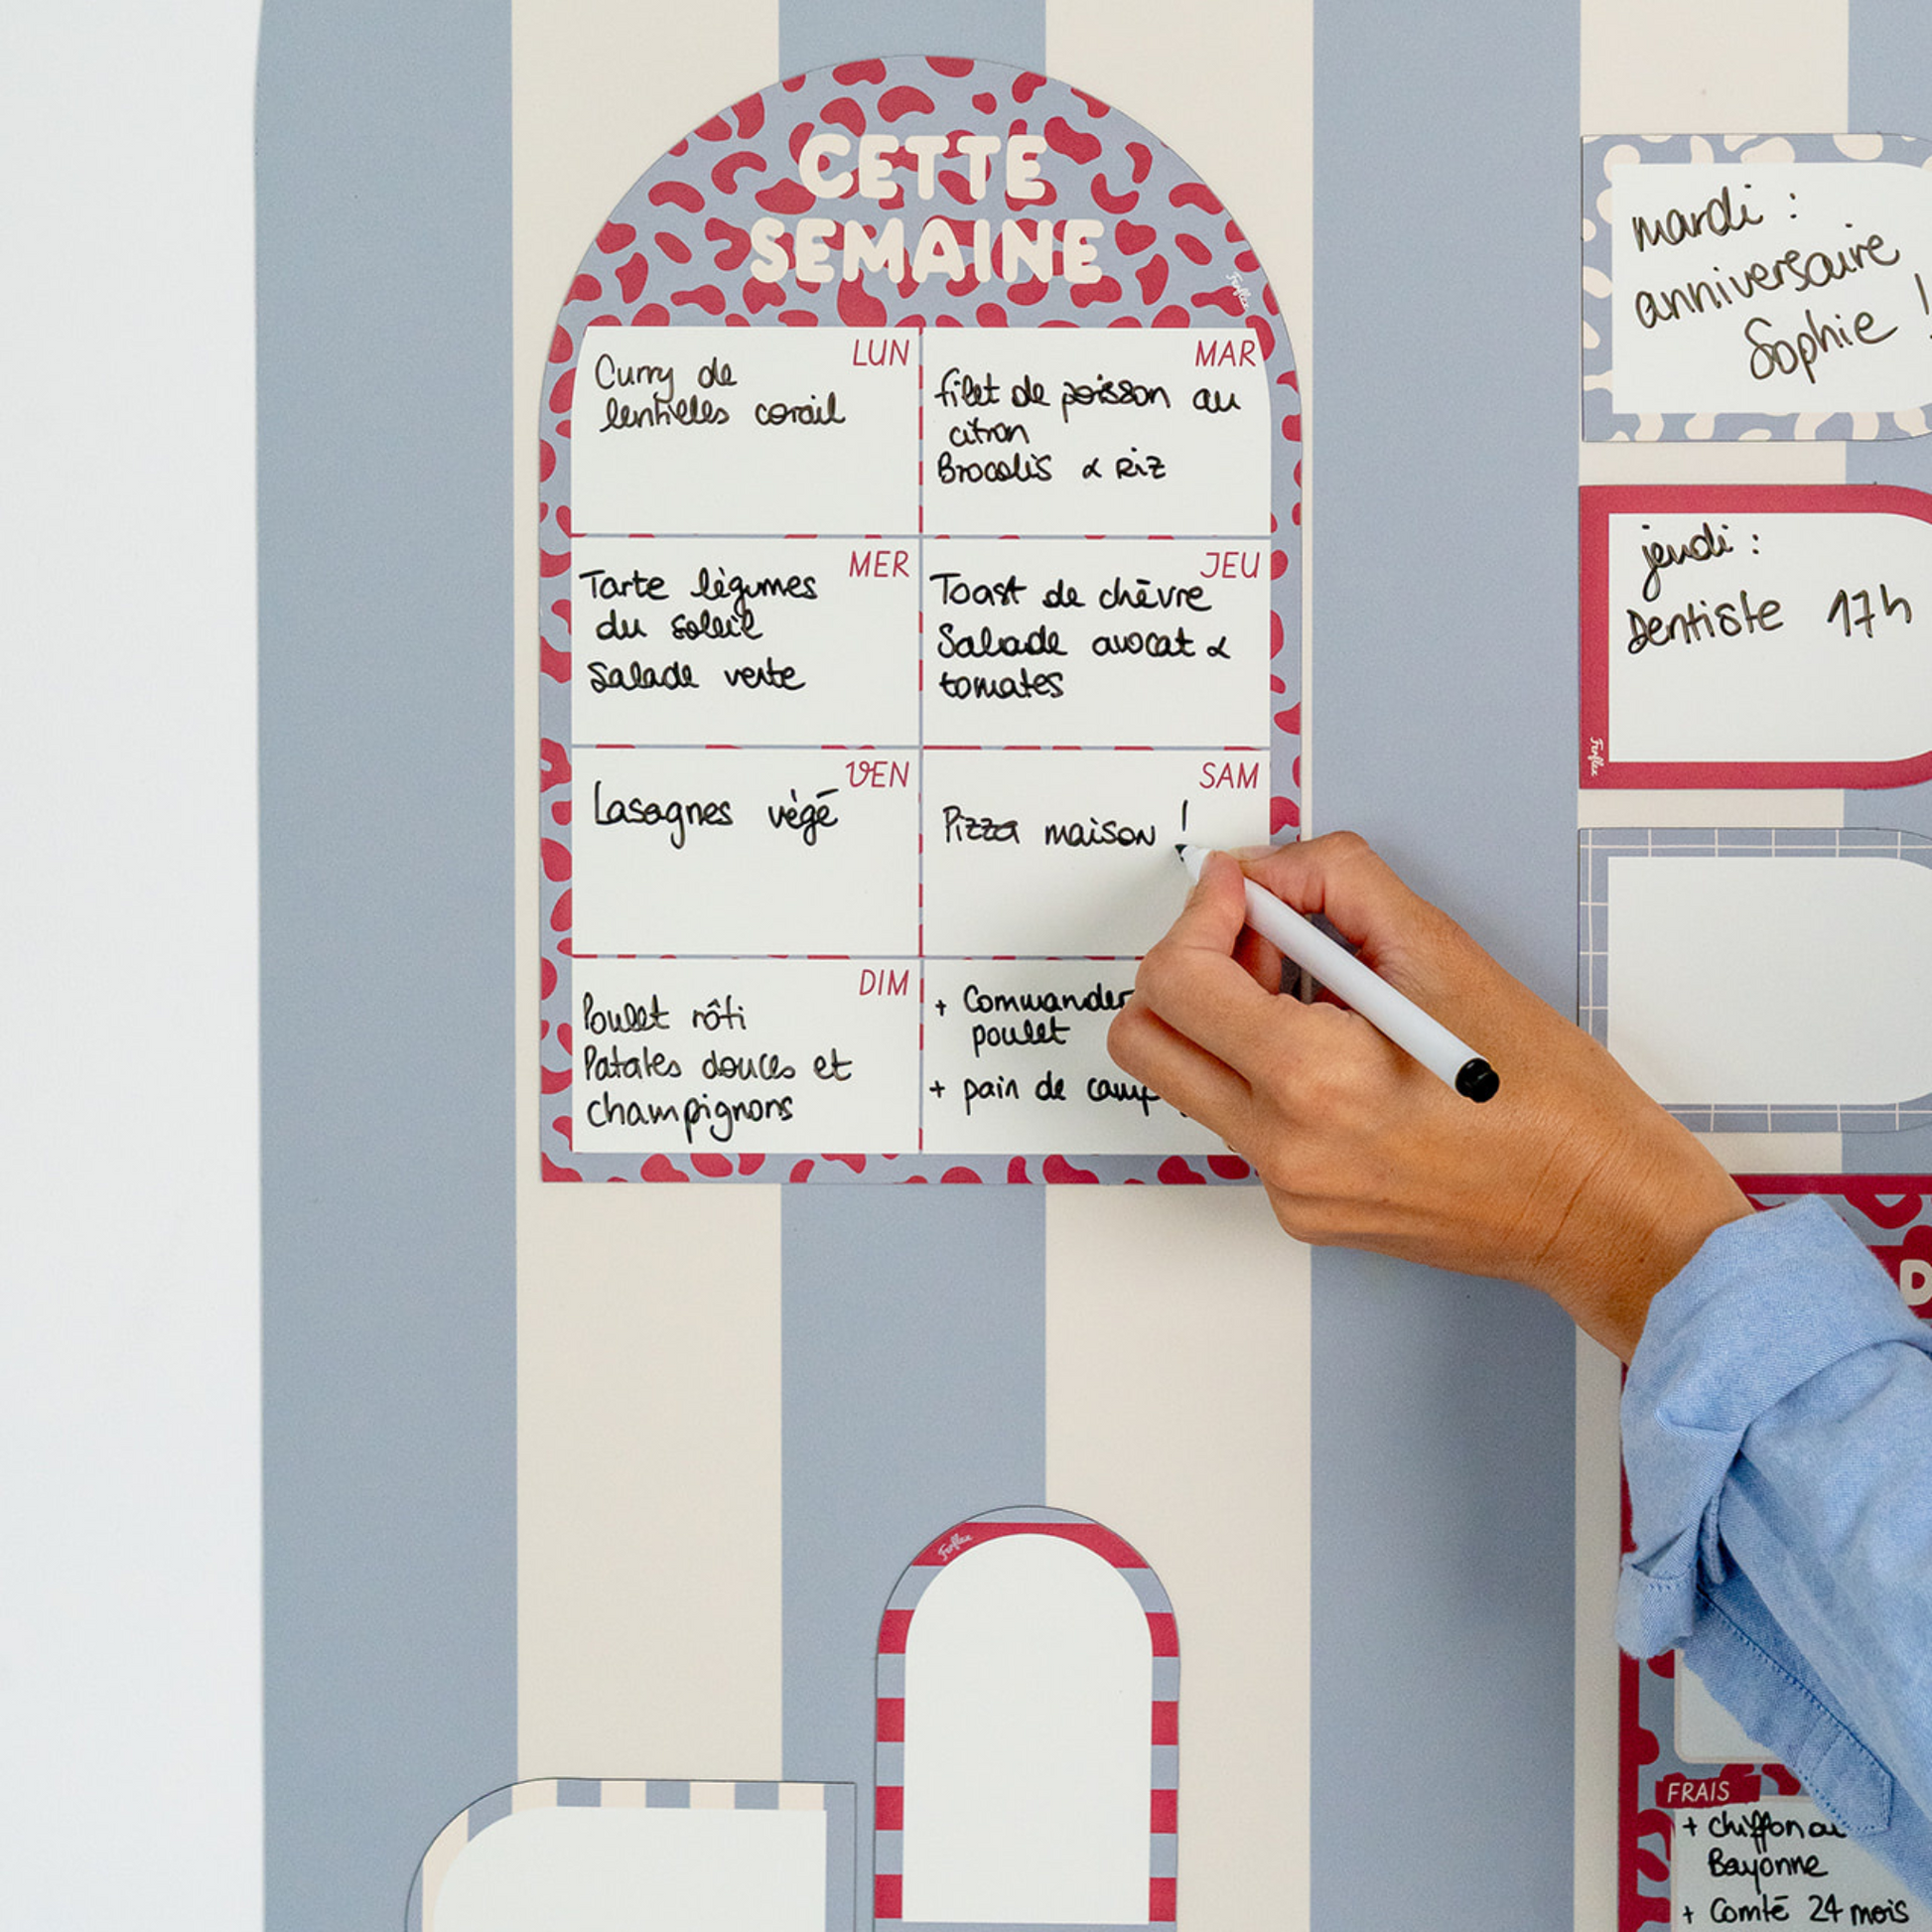 CETTE
SEMAINE
Ferflex
LUN
Curry de
lentilles corail
MAR
filet de poisson au
citron
Brocolis & Riz
MER
Tarte légumes
du soleil
Salade verte
JEU
Toast de chèvre
Salade avocat &
tomates
VEN
Lasagnes végé
SAM
Pizza maison !
DIM
Poulet rôti
Patates douces et
champignons
+ Commander
poulet
+ pain de camp
mardi :
anniversaire
Sophie !
jeudi :
Dentiste 17h
Ferflex
Ferflex
D
FRAIS
+ chiffon
Bayonne
+ Comté 24 mois